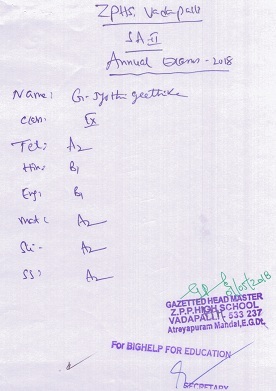 ZPHS, Vadapalli
SA-II
Annual Exams - 2018
Name: G. Jyothi geethika
Class: IX
Tel: A2
Hin: B1
Eng: B1
Mat: A2
Sci- A2
SS: A2
01/05/2018
GAZETTED HEAD MASTER
Z.P.P.HIGH SCHOOL
VADAPALLI - 533 237
Atreyapuram Mandal,E.G.Dt.
For BIGHELP FOR EDUCATION
SECRETARY